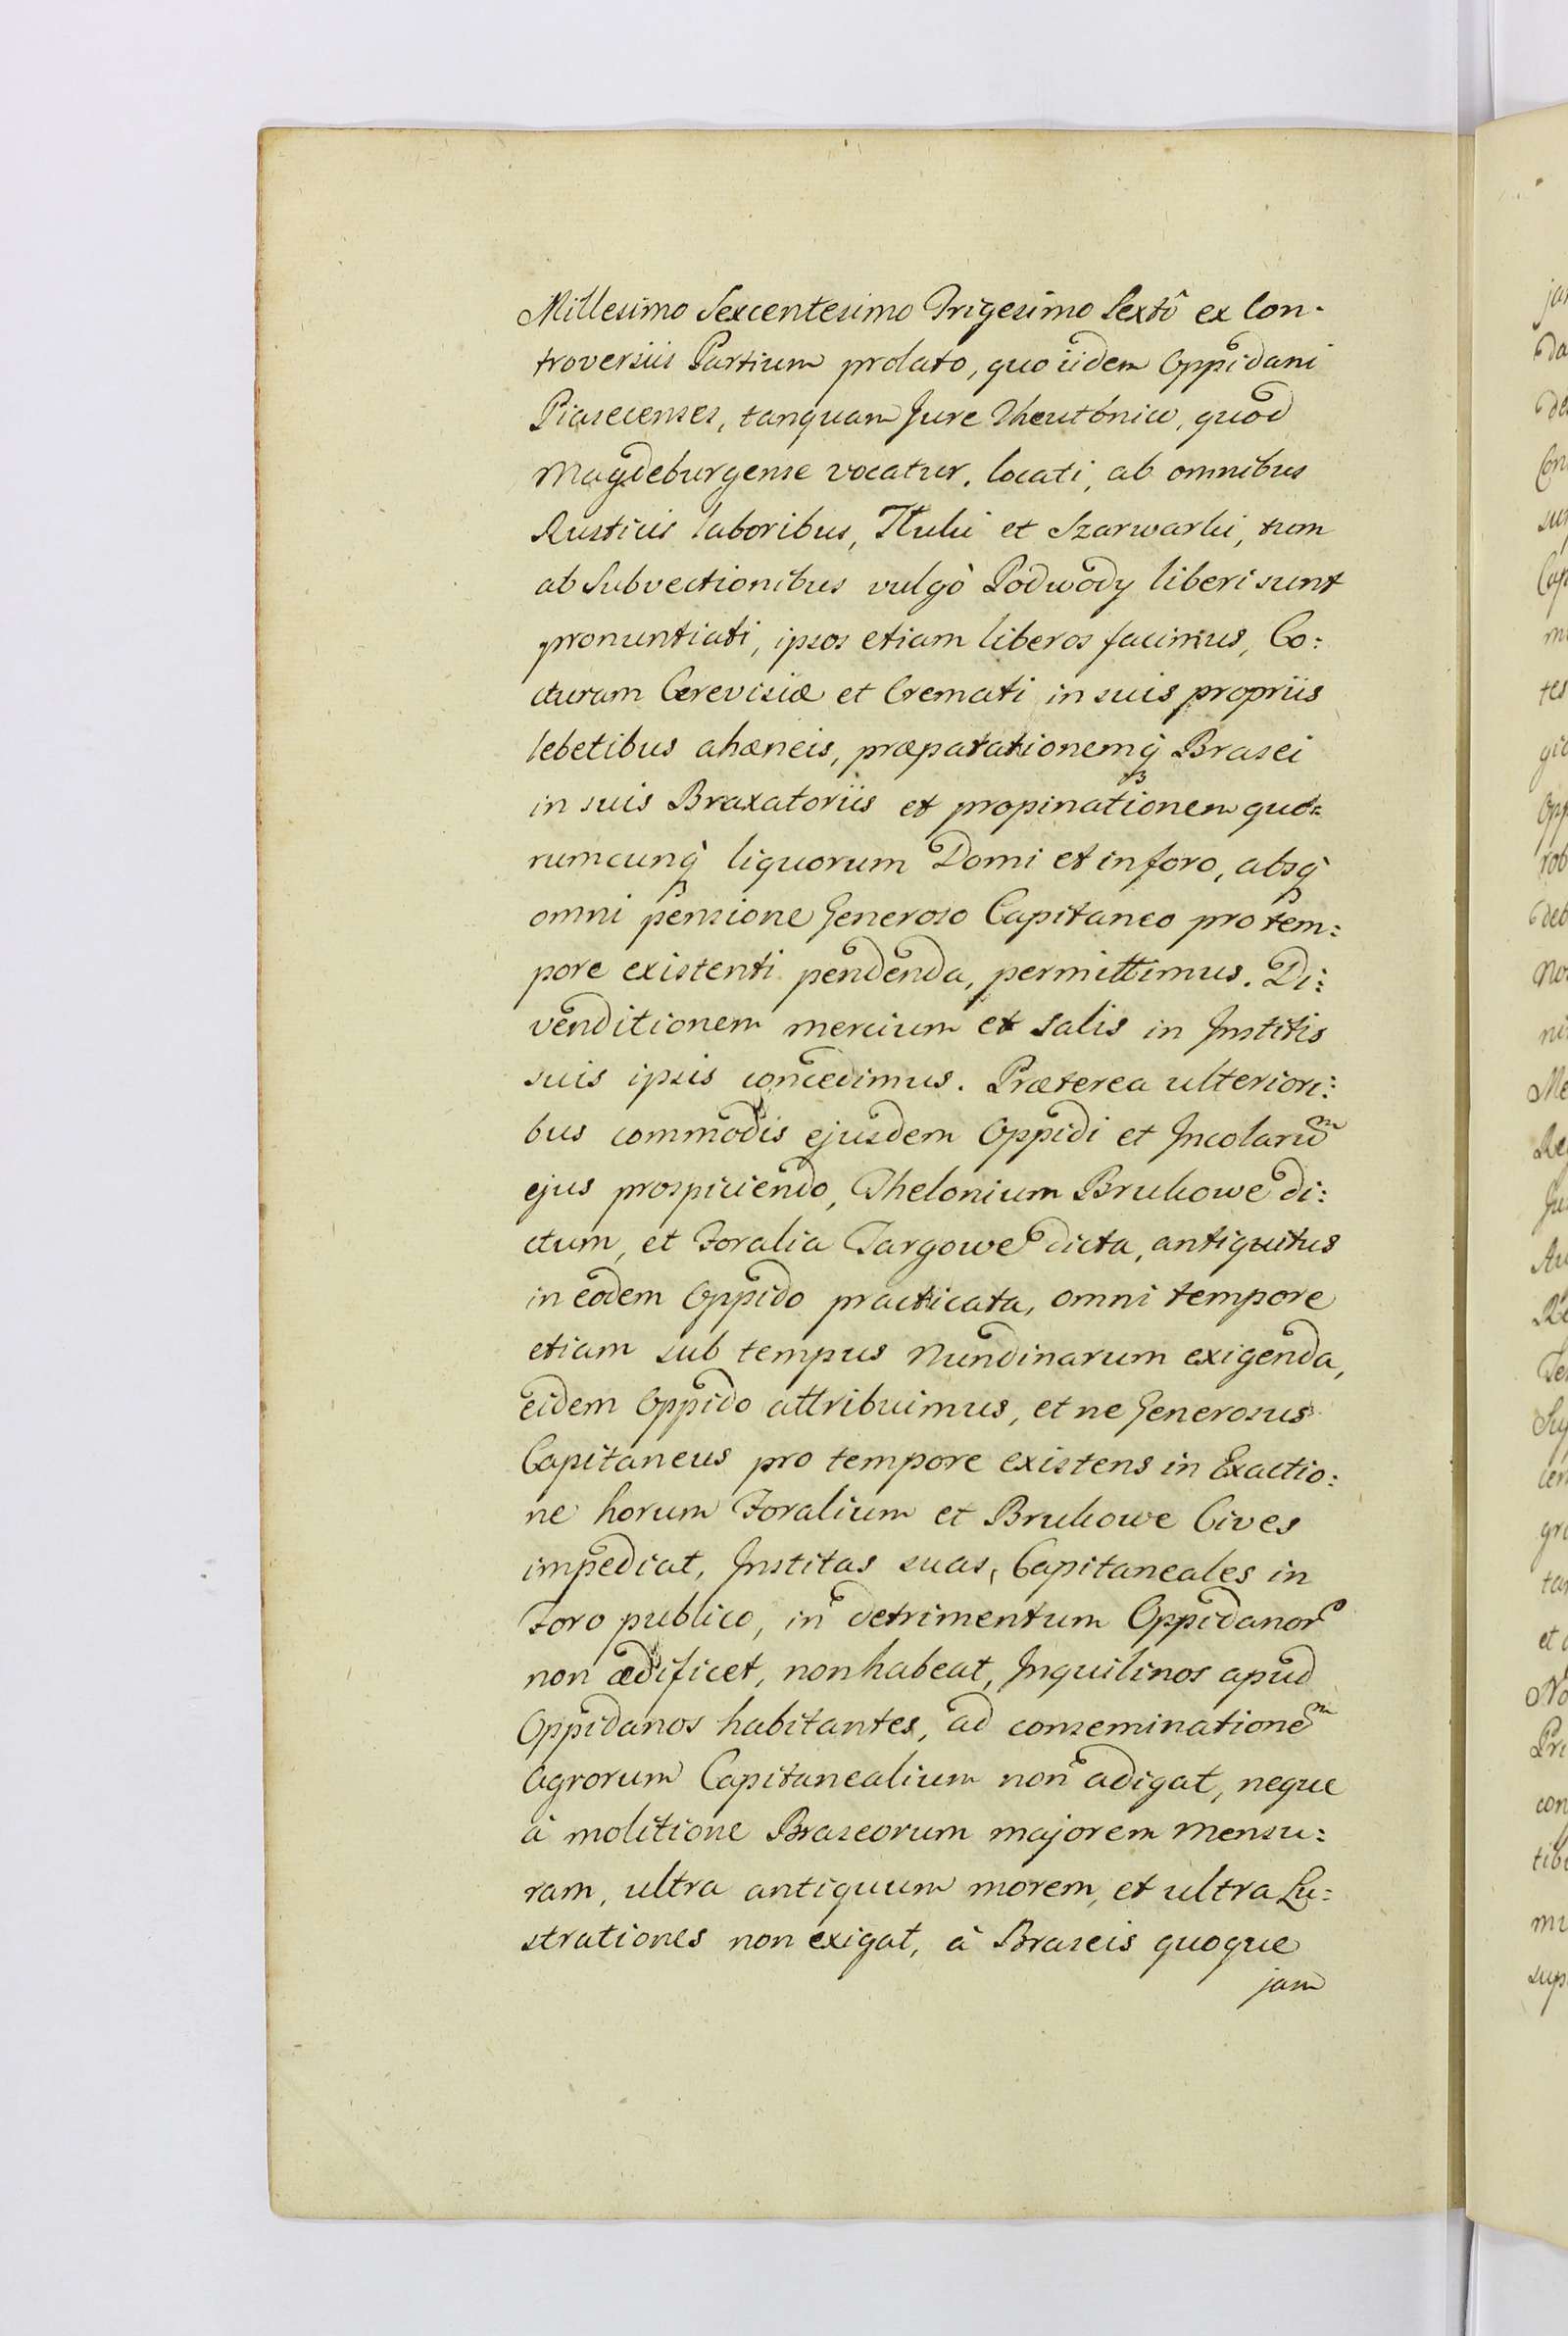 Millesimo Sexcentesimo Trigesimo Sextô ex Con-
troversiis Partium prolato, quo iidem Oppidani
Piasecenses, tanquam Jure Theutonico, quod
Magdeburgense vocatur, locati, ab omnibus
Rusticis laboribus, Tłuki et Szarwarki, tum
ab Subvectionibus vulgò Podwody liberi sunt
pronuntiati, ipsos etiam liberos facimus, Co:
cturam Cerevisiæ et Cremati in suis propriis
lebetibus ahæneis, præparationemq̀ Brasei
in suis Braxatoriis et propinationem quo=
rumcunq̀ liquorum Domi et in foro, absq̀
omni pensione Generoso Capitaneo pro tem:
pore existenti pendenda, permittimus. Di:
venditionem mercium et Salis in Institis
suis ipsis concedimus. Præterea ulteriori:
bus commodis ejusdem Oppidi et Incolarũ
ejus prospiciendo, Thelonium Brukowe di:
ctum, et Foralia Targowe dicta, antiquitus
in eodem Oppido practicata, omni tempore
etiam sub tempus Nundinarum exigenda,
eidem Oppido attribuimus, et ne Generosus
Capitaneus pro tempore existens in Exactio:
ne horum Foralium et Brukowe Cives
impediat, Institas suas, Capitaneales in
Foro publico, in detrimentum Oppidanor
non ædificet, non habeat, Inquilinos apud
Oppidanos habitantes, ad conseminationẽ
Agrorum Capitanealium non adigat, neque
à molitione Braseorum majorem mensu:
ram, ultra antiquum morem, et ultra Lu:
strationes non exigat, à Braseis quoque
jam